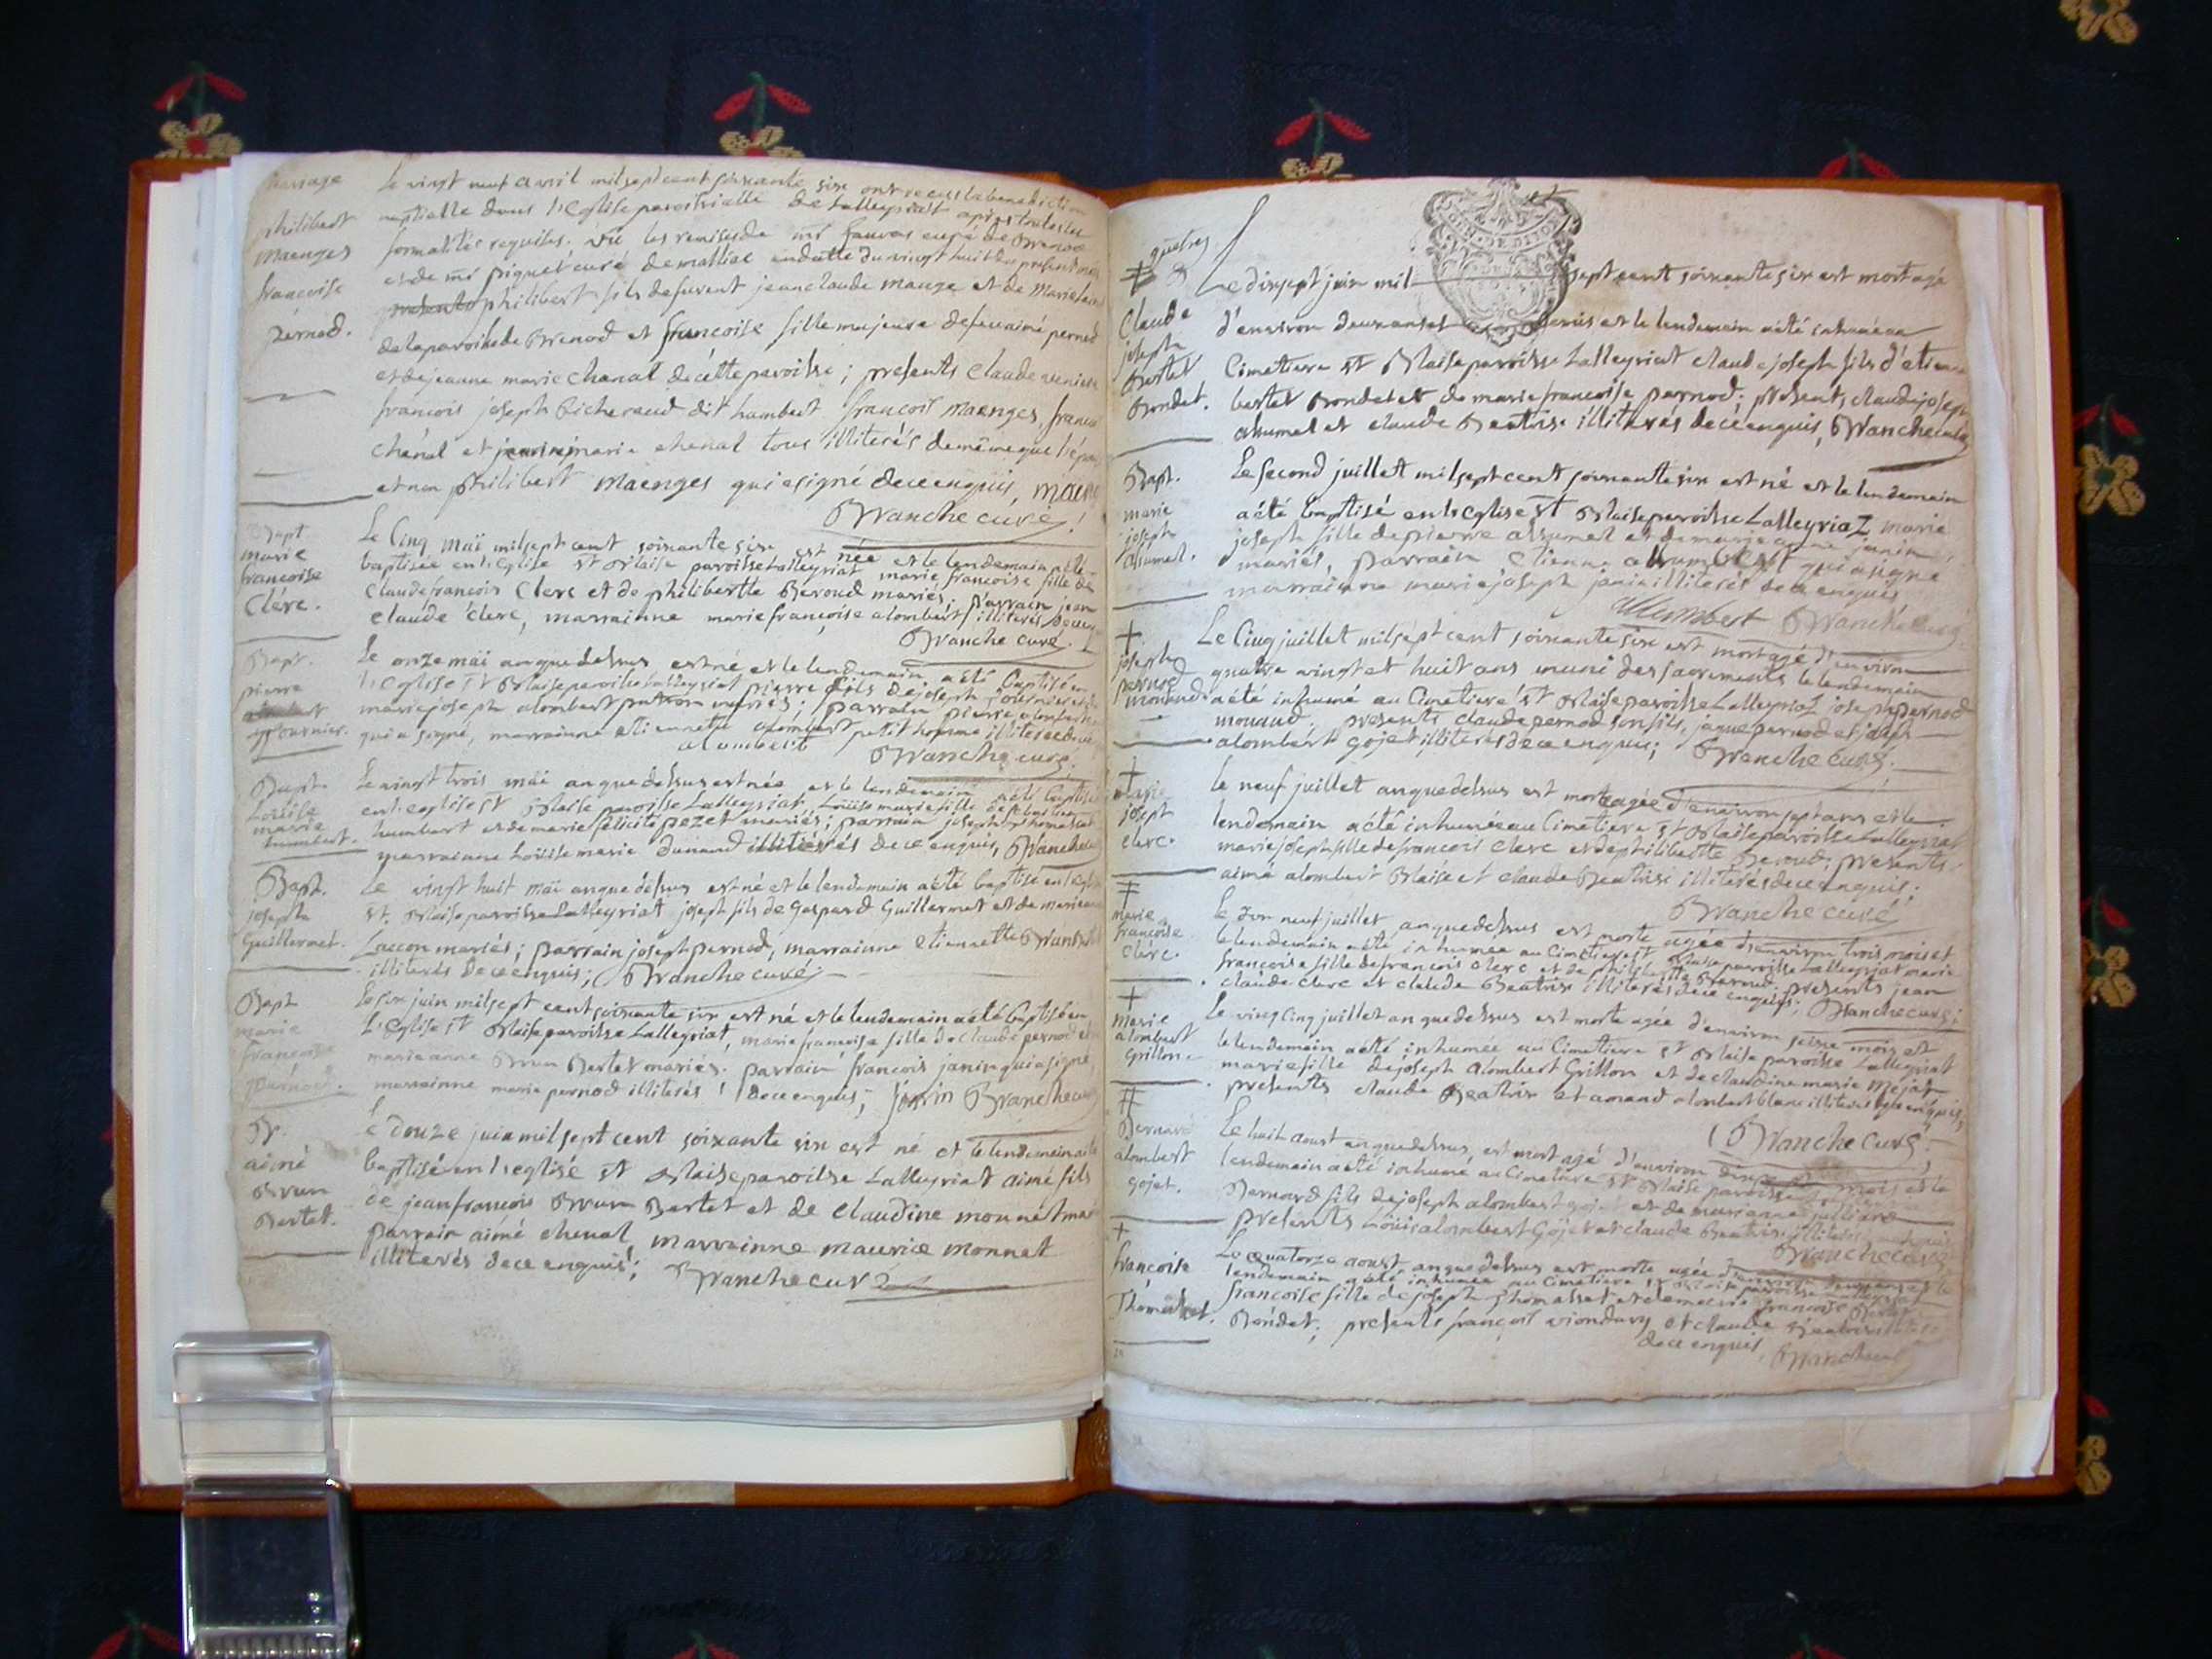 mariage
philibert
maenges
francoise
pernod.
Le vingt neuf avril mil sept cent soixante six ont recus la benediction
nuptialle dans l'eglise paroissialle de Lalleyriat apres toutes les
formalités requises. Vu les remises de mr curé de Brenod
et de mr piquet curé de en datte du vingt huit du present mois
philibert fils de fuent jean claude mange et de Marie
de la paroisse de Brenod et francoise fille majeure de feu aimé pernod
et de jeanne marie chanal de cette paroisse ; presents claude
francois joseph dit humbert francois maenges, francois
chénal et marie chenal tous illiterés de meme que
et non philibert maenges qui a signé de ce enquis, maenge
Branche curé !
Bapt
marie
francoise
Clérc.
Le Cinq mai mil sept cent soixante six est née et le lendemain a été
baptisée en l'eglise st Blaise paroisse Lalleyriat marie francoise fille de
Claude francois Clerc et de philiberthe Beroud mariés; parrain jean
claude clerc, marrainne marie françoise alombert illiterés de ce enquis
Branche curé.
Bapt.
pierre
fournier.
Le onze mai an que dessus est né et le lendemain a été baptisé en
l'eglise st Blaise paroisse Lalleyriat pierre fils de joseph fournier et de
marie joseph alombert mariés; parrain pierre alombert
qui a signé, marrainne etiennette alombert petit homme illiterée de ce
alombert Branche curé.
Bapt.
Louise
marie
humbert.
Le vingt trois mai an que dessus est née et le lendemain a été baptisée
en l'eglise st Blaise paroisse Lalleyriat Louise marie fille de
humbert et de marie felicité pezet mariés; parrain joseph
marrainne Louise marie Dunand illiterés de ce enquis, Branche
Bapt.
joseph
Guillermet.
Le vingt huit mai an que dessus est né et le lendemain a été baptisé en l'eglise
st. Blaise paroisse Lalleyriat joseph fils de Gaspard Guillermet et de marie
Laccon mariés; parrain joseph pernod, marrainne etiennette
illiterés de ce enquis; Branche curé
Bapt
marie
francoise
pernod.
Le six juin mil sept cent soixante six est né et le lendemain a été baptisé en
L'eglise st Blaise paroisse Lalleyriat, marie francoise fille de Claude pernod et de
marie anne Brun Bertet mariés. parrain francois janin qui a signé,
marrainne marie pernod illiterés ! de ce enquis; janin Branche curé
B.
aimé
Brun
Bertet.
Le Douze juin mil sept cent soixante six est né et le lendemain a été
baptisé en l'eglise st Blaise paroisse Lalleyriat aimé fils
de jean francois Brun Bertet et de Claudine monnet mar
parrain aimé chenal, marrainne maurice monnet
illiterés de ce enquis; Branche curé
quatres
‡
Claude
joseph
Bertet
Bondet.
Le dix sept juin mil sept cent soixante six est mort agé
d'environ deux ans et et le lendemain a été inhumé au
Cimetiere st Blaise paroisse Lalleyriat claude joseph fils d'etienne
bertet Bondet et de marie francoise pernod; présents, claude joseph
alsumel et claude Beatrix illiterés de ce enquis, Branche curé
Bapt.
marie
joseph
alsumel.
Le second juillet mil sept cent soixante six est né et le lendemain
a été baptisé en l'eglise st Blaise paroisse Lalleyriaz marie
joseph fille de pierre alsumel et de marie anne janin
mariés, parrain etienne allumbert qui a signé
marrainne marie joseph janin illiterés de ce enquis
allumbert Branche curé
+
joseph
pernod
monaud.
Le Cinq juillet mil sept cent soixante six est mort agé d'environ
quatre vingt et huit ans muni des sacrements le lendemain
a été inhumé au Cimetiere st Blaise paroisse Lalleyriaz joseph pernod
monaud. presents claude pernod son fils, jaque pernod et joseph
alombert gojet illiterés de ce enquis; Branche Curé.
+
marie
joseph
clerc.
le neuf juillet an que dessus est morte agée d'environ sept ans et le
lendemain a été inhumée au Cimetiere st Blaise paroisse Lalleyriat
marie joseph fille de francois clerc et de philiberthe Beroud; presents
aimé alombert Blaise et claude Beatrix illiterés de ce enquis;
Branche curé
‡
marie
francoise
clérc.
Le dix neuf juillet an que dessus est morte agée d'environ trois mois et
le lendemain a été inhumée au Cimetiere st Blaise paroisse Lalleyriat marie
francoise fille de francois clerc et de philiberthe Beroud; presents jean
claude clerc et claude Beatrix illiterés de ce enquis; Branche curé;
+
marie
alombert
grillon.
Le vingt Cinq juillet an que dessus est morte agée d'environ seize mois et
le lendemain a été inhumée au Cimetiere st Blaise paroisse Lalleyriat
marie fille de joseph alombert Grillon et de claudine marie mejat
presents claude Beatrix et amand alombert blanc illiterés de ce enquis;
Branche Curé
‡
Bernard
alombert
gojet.
Le huit aoust an que dessus, est mort agé d'environ mois et le
lendemain a été inhumé au Cimetiere st Blaise paroisse
Bernard fils de joseph alombert gojet et de marianne julliard
presents Louis alombert Gojet et claude Beatrix illiterés
Branche curé
+
francoise
Thomasset.
Le quatorze aoust an que dessus est morte agée d'environ deux ans et le
lendemain a été inhumée au Cimetiere st Blaise paroisse Lalleyriat
francoise fille de joseph thomasset et de marie francoise Bertet
Bondet; presents françois viondury et claude Beatrix
de ce enquis, Branche